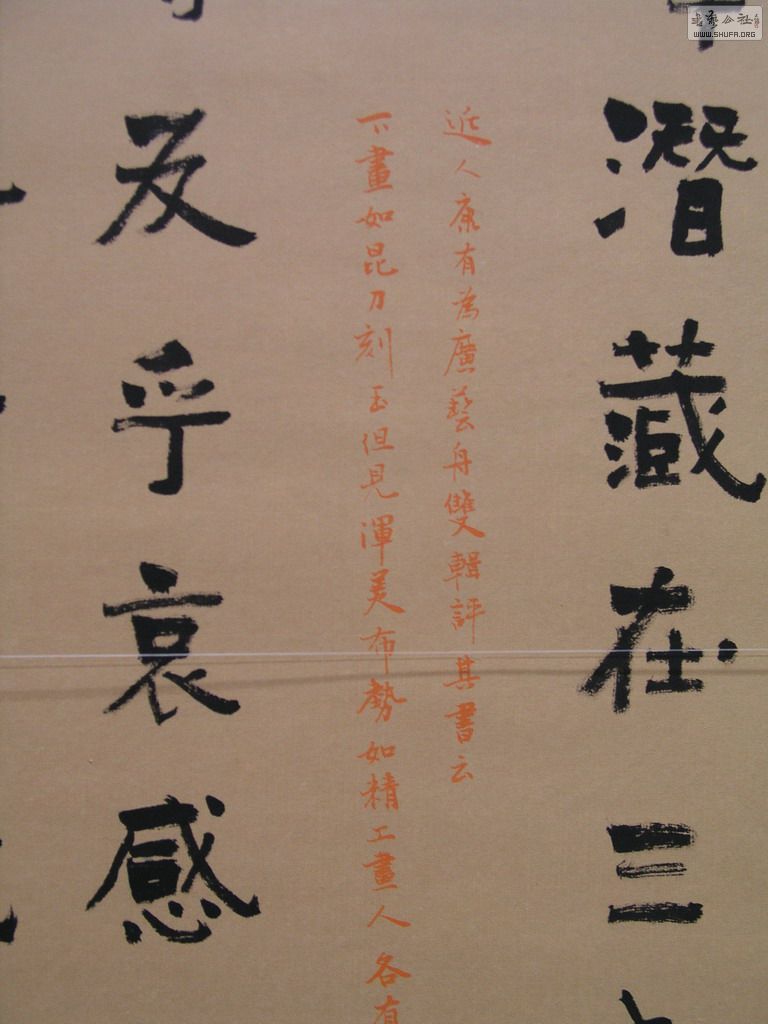 潛藏在三
近人康有為廣藝舟雙輯評其書云
下畫如昆刀刻玉但見渾美布勢如精工畫人各有
及乎哀感
書藝公社
WWW.SHUFA.ORG